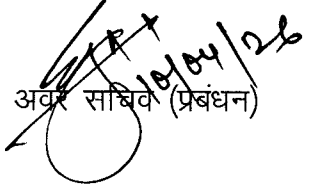 10/04/26
अवर सचिव (प्रबंधन)